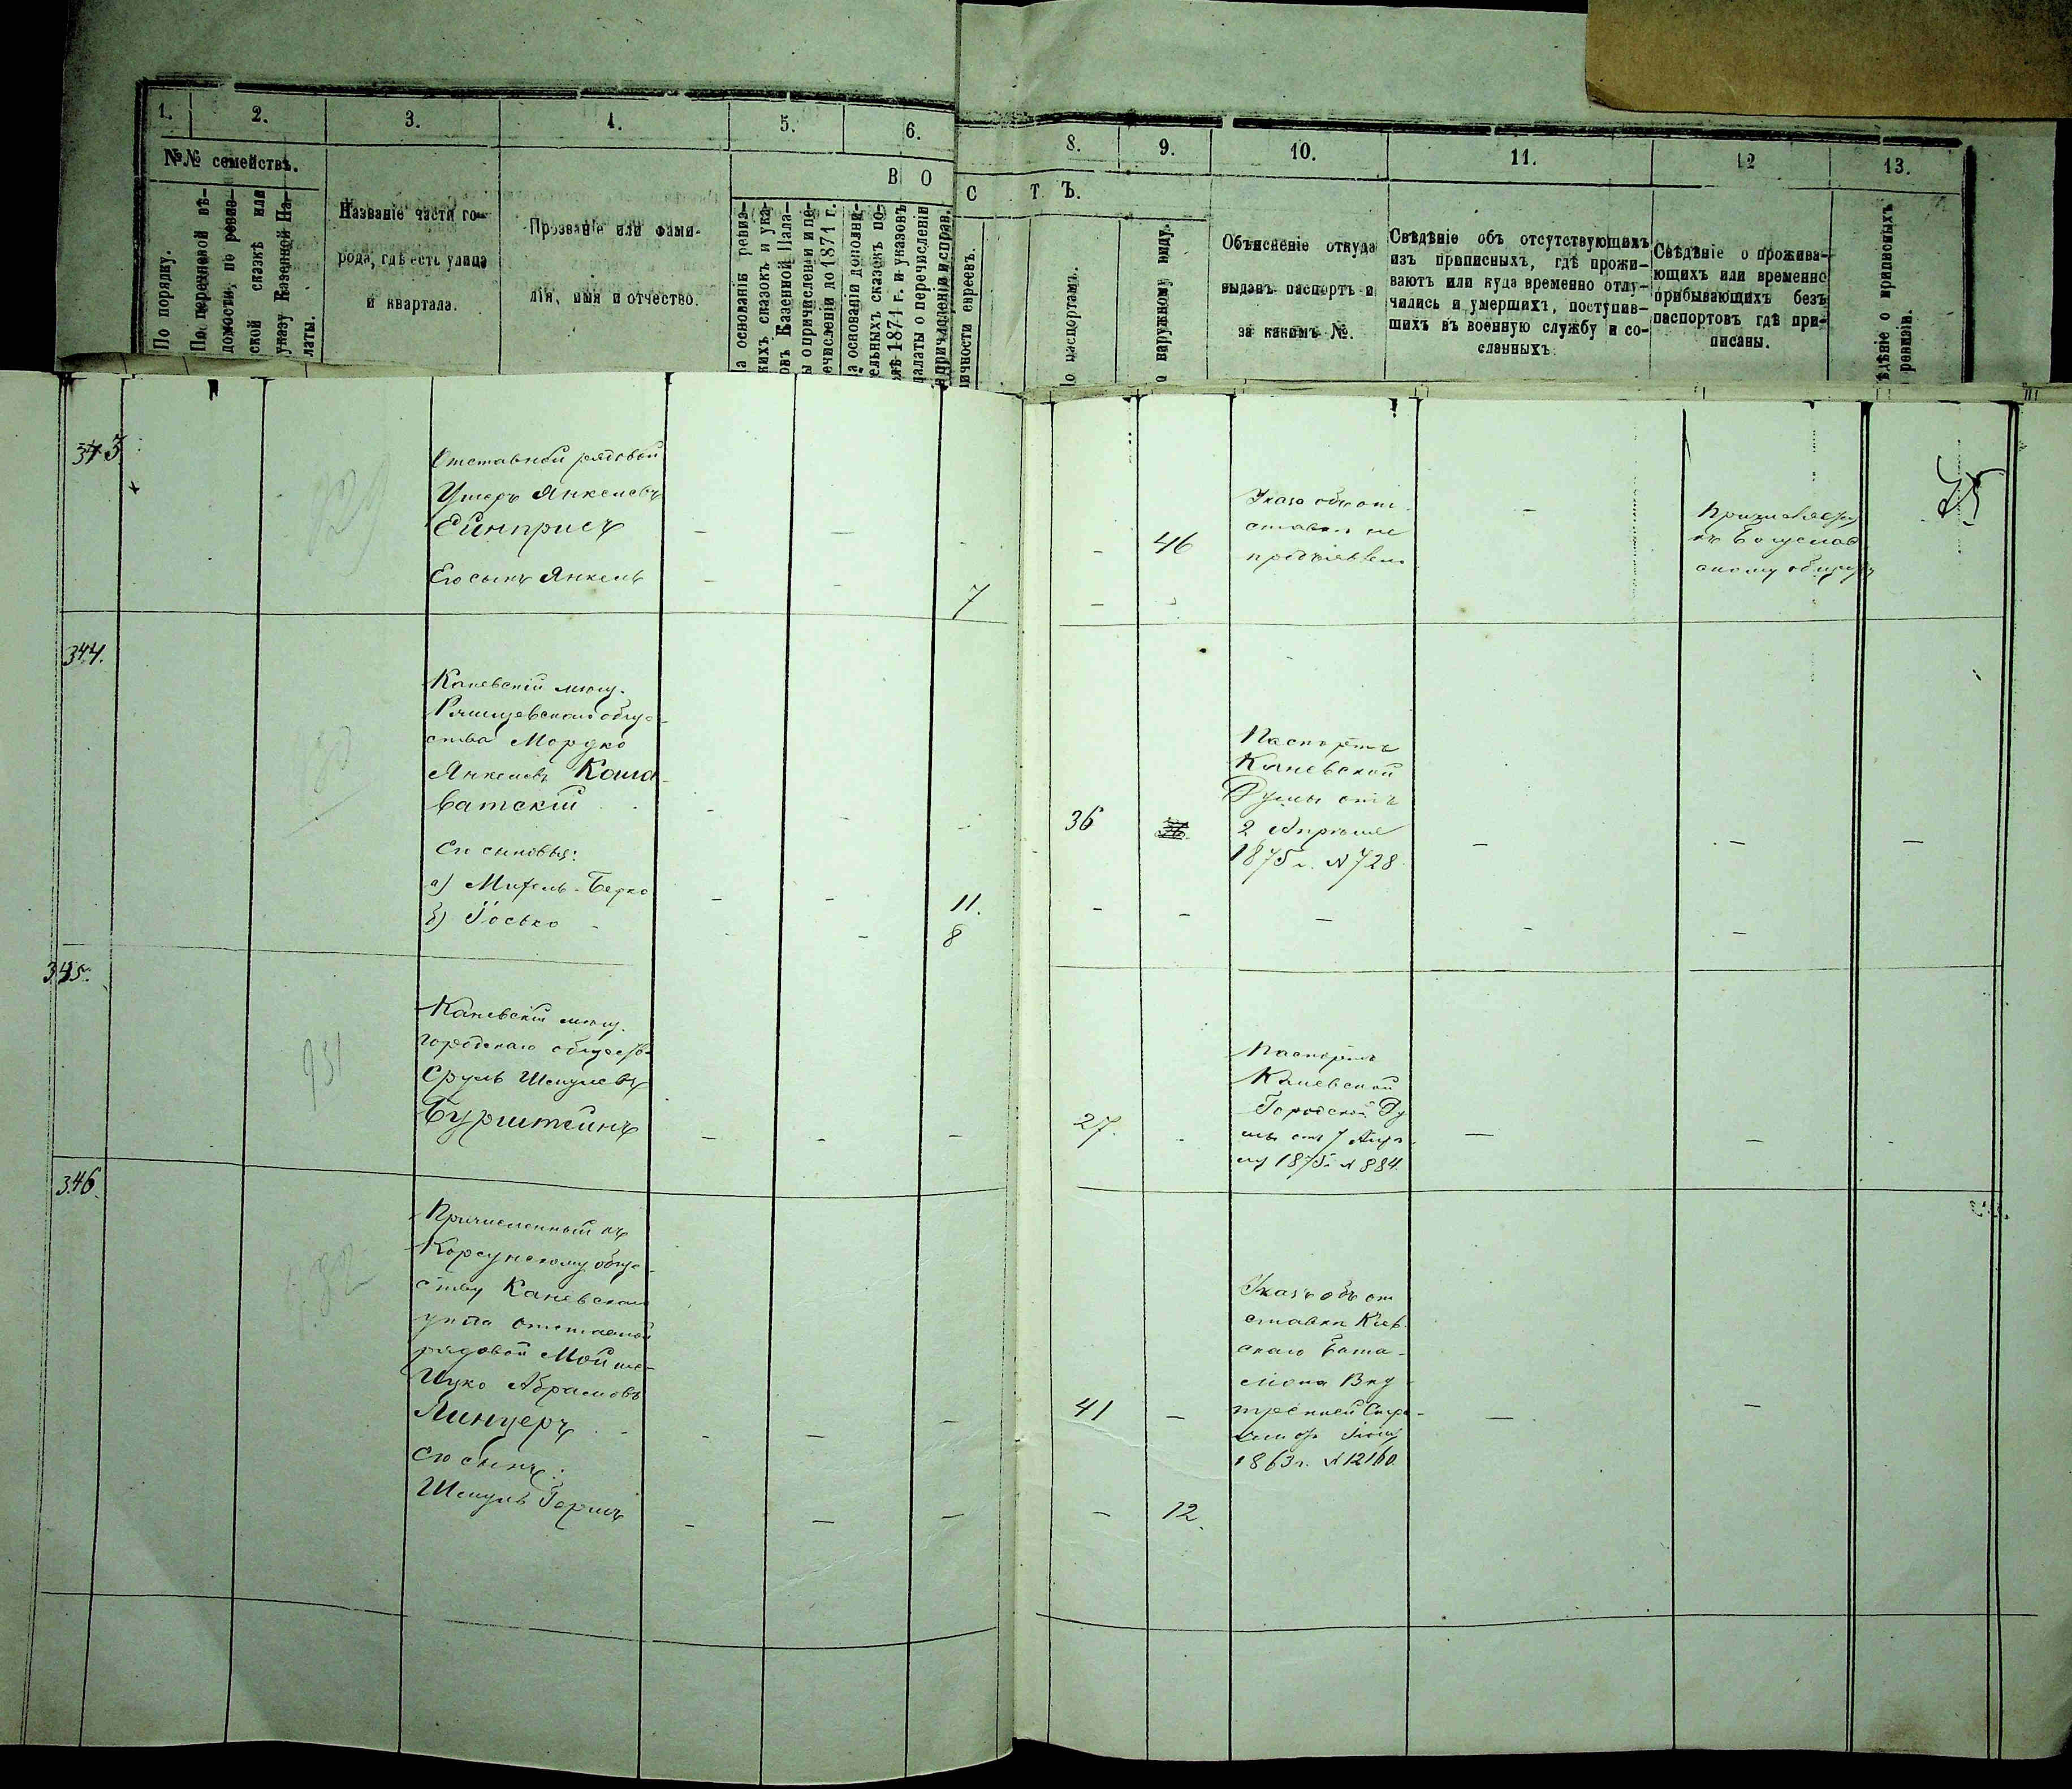 1.
2.
3.
4.
5.
6.
8.
9.
10.
11.
12
13.
№№ семействъ.
В О
С Т Ъ.
По порядку.
По перехневой вѣ-
домости, по ревиз-
ской сказкѣ или
указу Казенной Па-
латы.
Названіе части го-
рода, гдѣ есть улица
и квартала.
Прозваніе или фами-
лія, имя и отчество.
а основаніи ревиз-
кихъ сказокъ и ука-
овъ Казенной Пала-
ы о причисленіи и пе-
ечисленіи до 1871 г.
а основаніи дополни-
ельныхъ сказокъ по-
лѣ 1871 г. и указовъ
палаты о перечисленіи
и причисленіи и справ.
ичности евреевъ.
о паспортамъ.
о наружному виду.
Объясненіе откуда
выданъ паспортъ и
за какимъ №.
Свѣдѣніе объ отсутствующихъ
изъ приписныхъ, гдѣ прожи-
ваютъ или куда временно отлу-
чились и умершихъ, поступив-
шихъ въ военную службу и со-
сланныхъ.
Свѣдѣніе о прожива-
ющихъ или временно
прибывающихъ безъ
паспортовъ гдѣ при-
писаны.
ѣдѣніе о приписныхъ
ревизіи.
343
929
Отставной рядовой
Ушеръ Янкелевъ
Ейнприсъ
Его сынъ Янкель
7
46
Указа объ от-
ставкѣ не
предъявлено
Причисляется
къ Богуслав
скому обществу
344.
930
Каневскій мѣщ.
Ржищевскаго обще-
ства Мордко
Янкелевъ Кошо-
ватскій
Ег сыновья:
а) Михель-Берко
11.
б) Іосько
8
36
36.
Паспортъ
Каневской
Думы отъ
2 Апрѣля
1875 г. N 728
345.
931
Каневскій мѣщ.
городскаго общест
Сруль Шмулевъ
Бурштейнъ
27.
Паспортъ
Каневской
Городской Ду
мы отъ 7 Апрѣ-
ля 1875 г. N 884.
346.
932
Причисленный къ
Корсунскому обще-
ству Каневскаго
уѣзда отставной
рядовой Мойше-
Ицко Абрамовъ
Линцеръ
Его сынъ:
Шмуль Гершъ
41
12.
Указъ объ от
ставкѣ Кіев
скаго Бата-
ліона Вну
тренней Стра-
жи
1863 г. N 12160